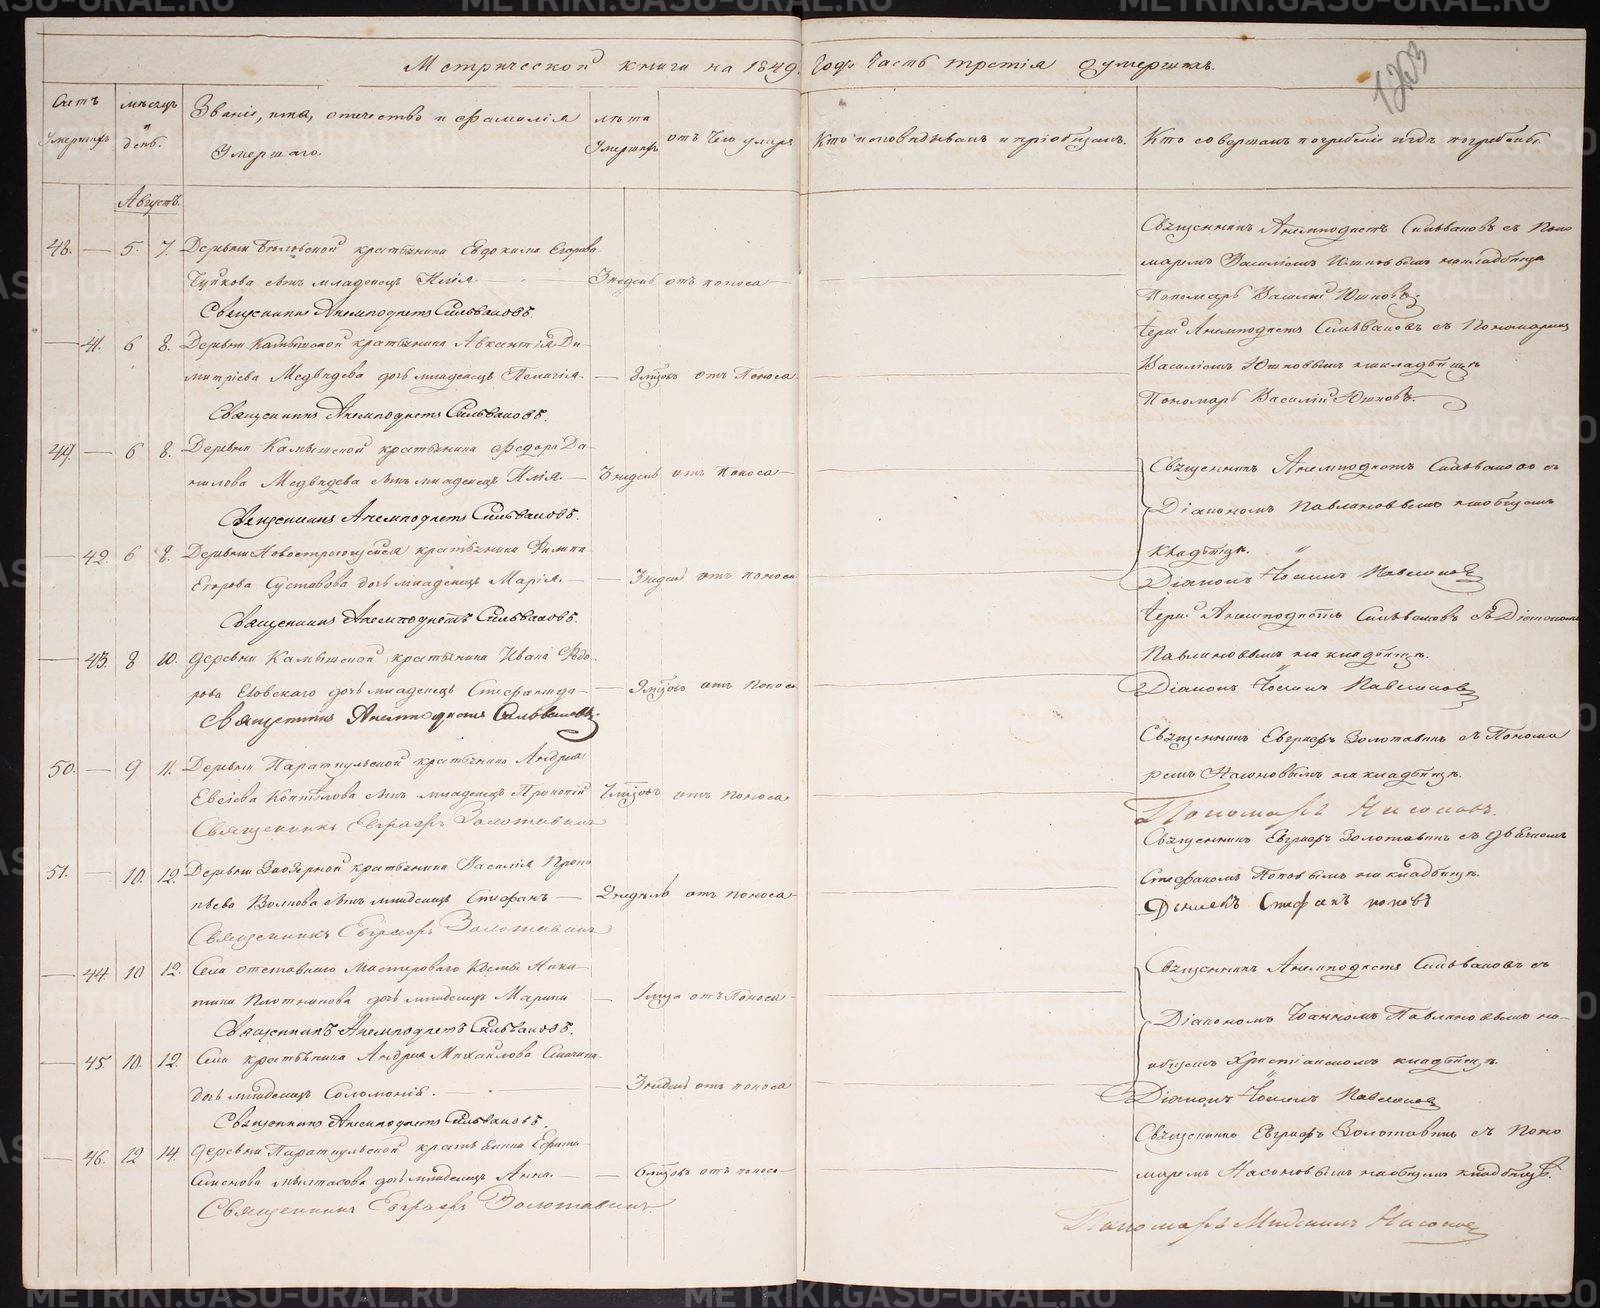 Метрической книги на 1849. Годъ Часть третія О умершихъ.
1203
Счетъ умершихъ
мѣсяцъ и день.
Званіе, имя, отечество и фамилія умершаго.
лѣта умершихъ
отъ чего умеръ
Кто исповѣдывалъ и пріобщалъ.
Кто совершалъ погребеніе и гдѣ погребены.
Августъ.
48. — 5. 7. Деревни крестьянина Евдокима Егорова
Чупкова сынъ младенецъ Илія. 3 недель отъ поноса
Священникъ Анемподистъ Сильвановъ.
Священникъ Анемподистъ Сильвановъ съ Поно
маремъ Василіемъ Южновымъ на кладбище
Пономарь Василій Южновъ
— 41. 6 8. Деревни Камышской крестьянина Авксентія Ди-
митріева Медвѣдева дочь младенецъ Пелагія. — отъ Поноса
Священникъ Анемподистъ Сильвановъ.
Іерей Анемподистъ Сильвановъ съ Пономаремъ
Василіемъ Южновымъ на кладбищѣ
Пономарь Василій Южновъ.
49. — 6 8. Деревни Камышской крестьянина Федора Да-
нилова Медвѣдева сынъ младенецъ Илія. — 3 недель отъ Поноса
Священникъ Анемподистъ Сильвановъ.
Священникъ Анемподистъ Сильвановъ съ
Діакономъ Павлиновымъ на общемъ
кладбищѣ.
Діаконъ Іоаннъ Павлиновъ
— 42. 6 8. Деревни крестьянина Филипа
Егорова Суставова дочь младенецъ Марія. — 3 недель отъ поноса
Священникъ Анемподистъ Сильвановъ.
Іерей Анемподистъ Сильвановъ съ Діакономъ
Павлиновымъ на кладбищѣ.
Діаконъ Іоаннъ Павлиновъ
— 43. 8 10. деревни Камышской крестьянина Ивана Ѳедо-
рова дочь младенецъ Стефанида — отъ Поноса
Священникъ Анемподистъ Сильвановъ
50. — 9 11. Деревни Параткульской крестьянина Андрея
Евсіева Копылова сынъ младенецъ Прокопій отъ Поноса
Священникъ Евграфъ Золотавинъ
Священникъ Евграфъ Золотавинъ съ Понома
ремъ Насоновымъ на кладбищѣ.
Пономарь Насоновъ.
51. — 10. 12. Деревни Заозерной крестьянина Василія Проко
пьева Волкова сынъ младенецъ Стефанъ — 2 недѣль отъ поноса
Священникъ Евграфъ Золотавинъ
Священникъ Евграфъ Золотавинъ съ дьячкомъ
Стефаномъ Поповымъ на кладбищѣ.
Дьячекъ Стефанъ Поповъ
— 44. 10 12. Села отставнаго Мастероваго Космы Ники-
тина Плотникова дочь младенецъ Марина — 1 года отъ Поноса
Священникъ Анемподистъ Сильвановъ.
Священникъ Анемподистъ Сильвановъ съ
Діакономъ Іоанномъ Павлиновымъ на
общемъ Христіанскомъ кладбищѣ.
Діаконъ Іоаннъ Павлиновъ
— 45. 10. 12. Села крестьянина Андрея Михайлова
дочь младенецъ Соломонія. — 3 недель отъ поноса
Священникъ Анемподистъ Сильвановъ.
— 46. 12 14. деревни Параткульской крестьянина Ефима
Симонова дочь младенецъ Анна. — отъ поноса
Священникъ Евграфъ Золотавинъ
Священникъ Евграфъ Золотавинъ съ Поно
маремъ Насоновымъ на общемъ кладбищѣ.
Пономарь Насоновъ
METRIKI.GASO-URAL.RU